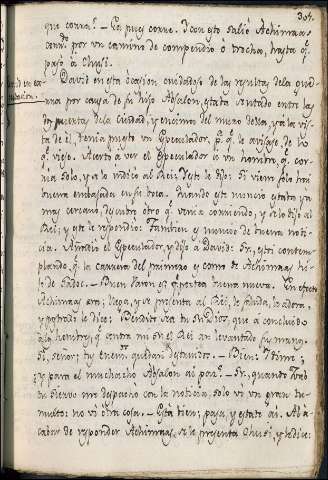 304.
que corra? – Ea pues corre. Y con esto salió Achimaas
corr.do por un camino de compendio o trocha, hasta q.e
pasò à Chusi.
David en esta ocasion cuidadoso de las resultas dela que
rra por causa de su hijo Absalon, estaba sentado entre las
dos puertas dela Ciudad, y encima del muro de ella, y a la vis
ta de él, tenia puesto un Especulador p.a q.e le avisase, de lo
q.e viese. Acertó a ver el Especulador a un hombre, q.e cor
ria solo, y se lo indicó al Rei. Y este le dijo: Si viene solo trai
buena embajada en su boca. Y cuando este nuncio estaba ya
muy cercano, descubre otro q.e venia corriendo, y se lo dijo al
Rei; y este le respondio: Tambien es nuncio de buena noti
cia. Añadió el Especulador, y dijo a David: Sr., estoi contem
plando, q.e la carrera del primero es como de Achimaas hi
jo de Sadoc. – Buen varon es: portea buena nueva. En efecto
Achimaas corre, llega, y se presenta al Rei, le saluda, lo adora,
y postrado le dice: Bendito sea tu Sr. Dios, que à concluido
a los hombres, q.e contra mi Sr. el Rei an levantado sus mano
Si, señor; tus enem.s quedan destruidos. – Bien: Dime;
¿y para el muchacho Absalon ai paz? – Sr., quando Joab
tu siervo me despachó con la noticia, solo vi un gran tu
multo: no vi otra cosa. – Está bien; pasa, y estate ai. Al a
cabar de responder Achimaas, se le presenta Chusi, y le dice: